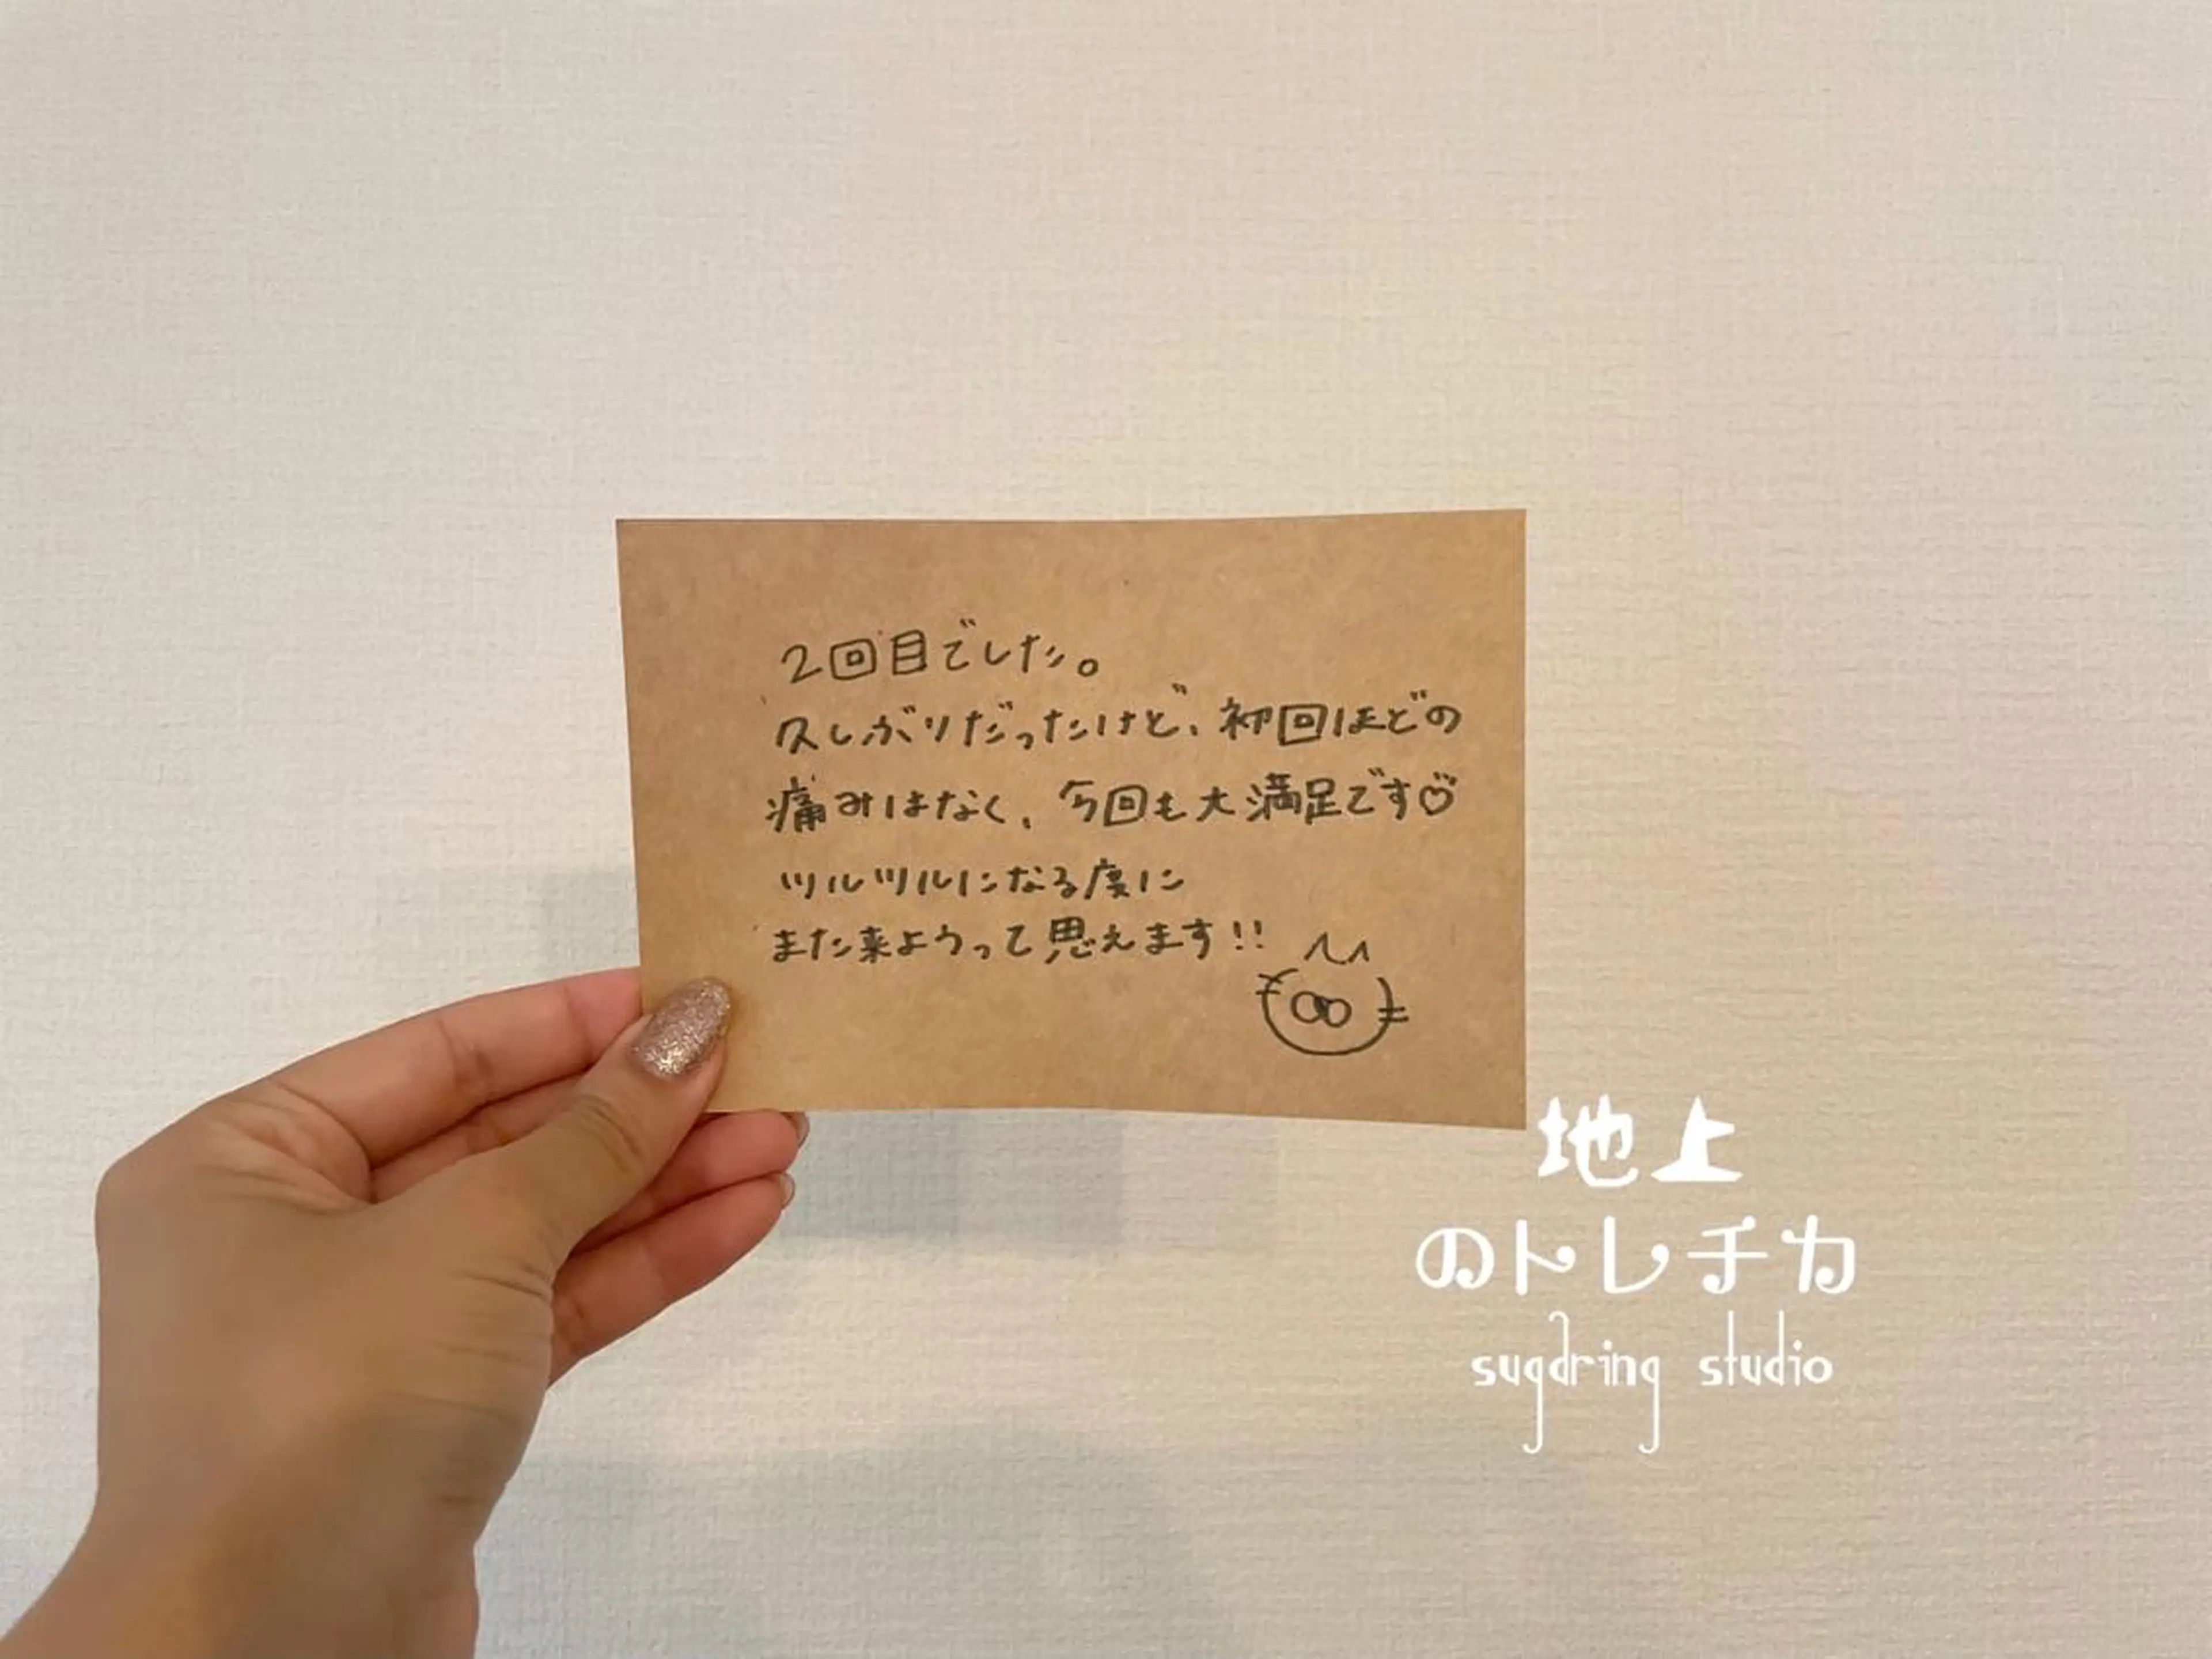 2回目でした。
久しぶりだったけど、初回ほどの
痛みはなく、今回も大満足です♡
ツルツルになる度に
また来ようって思えます!!
地上
のトレチカ
sugaring studio